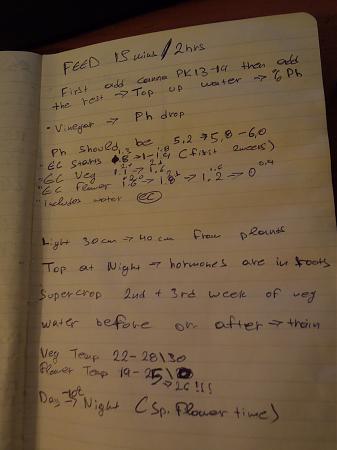 FEED 15 mins / 2hrs
First add canna PK13-14 then add
the rest → Top up water → % Ph
• Vinegar → Ph drop
Ph should be 5,2 → 5,8 - 6,0
• EC Starts .8 → 1 - 1,4 (first 2 weeks)
• EC Veg 1.1 → 1.6
• EC Flower 1.6 → 1.8 → 1.2 → 0
• includes water EC
Light 30cm → 40cm from plants
Top at Night → hormones are in roots
Supercrop 2nd + 3rd week of veg
water before or after → train
Veg Temp 22-28\30
Flower Temp 19-25\
→ 26!!!
Day → Night (Sp. Flower time)